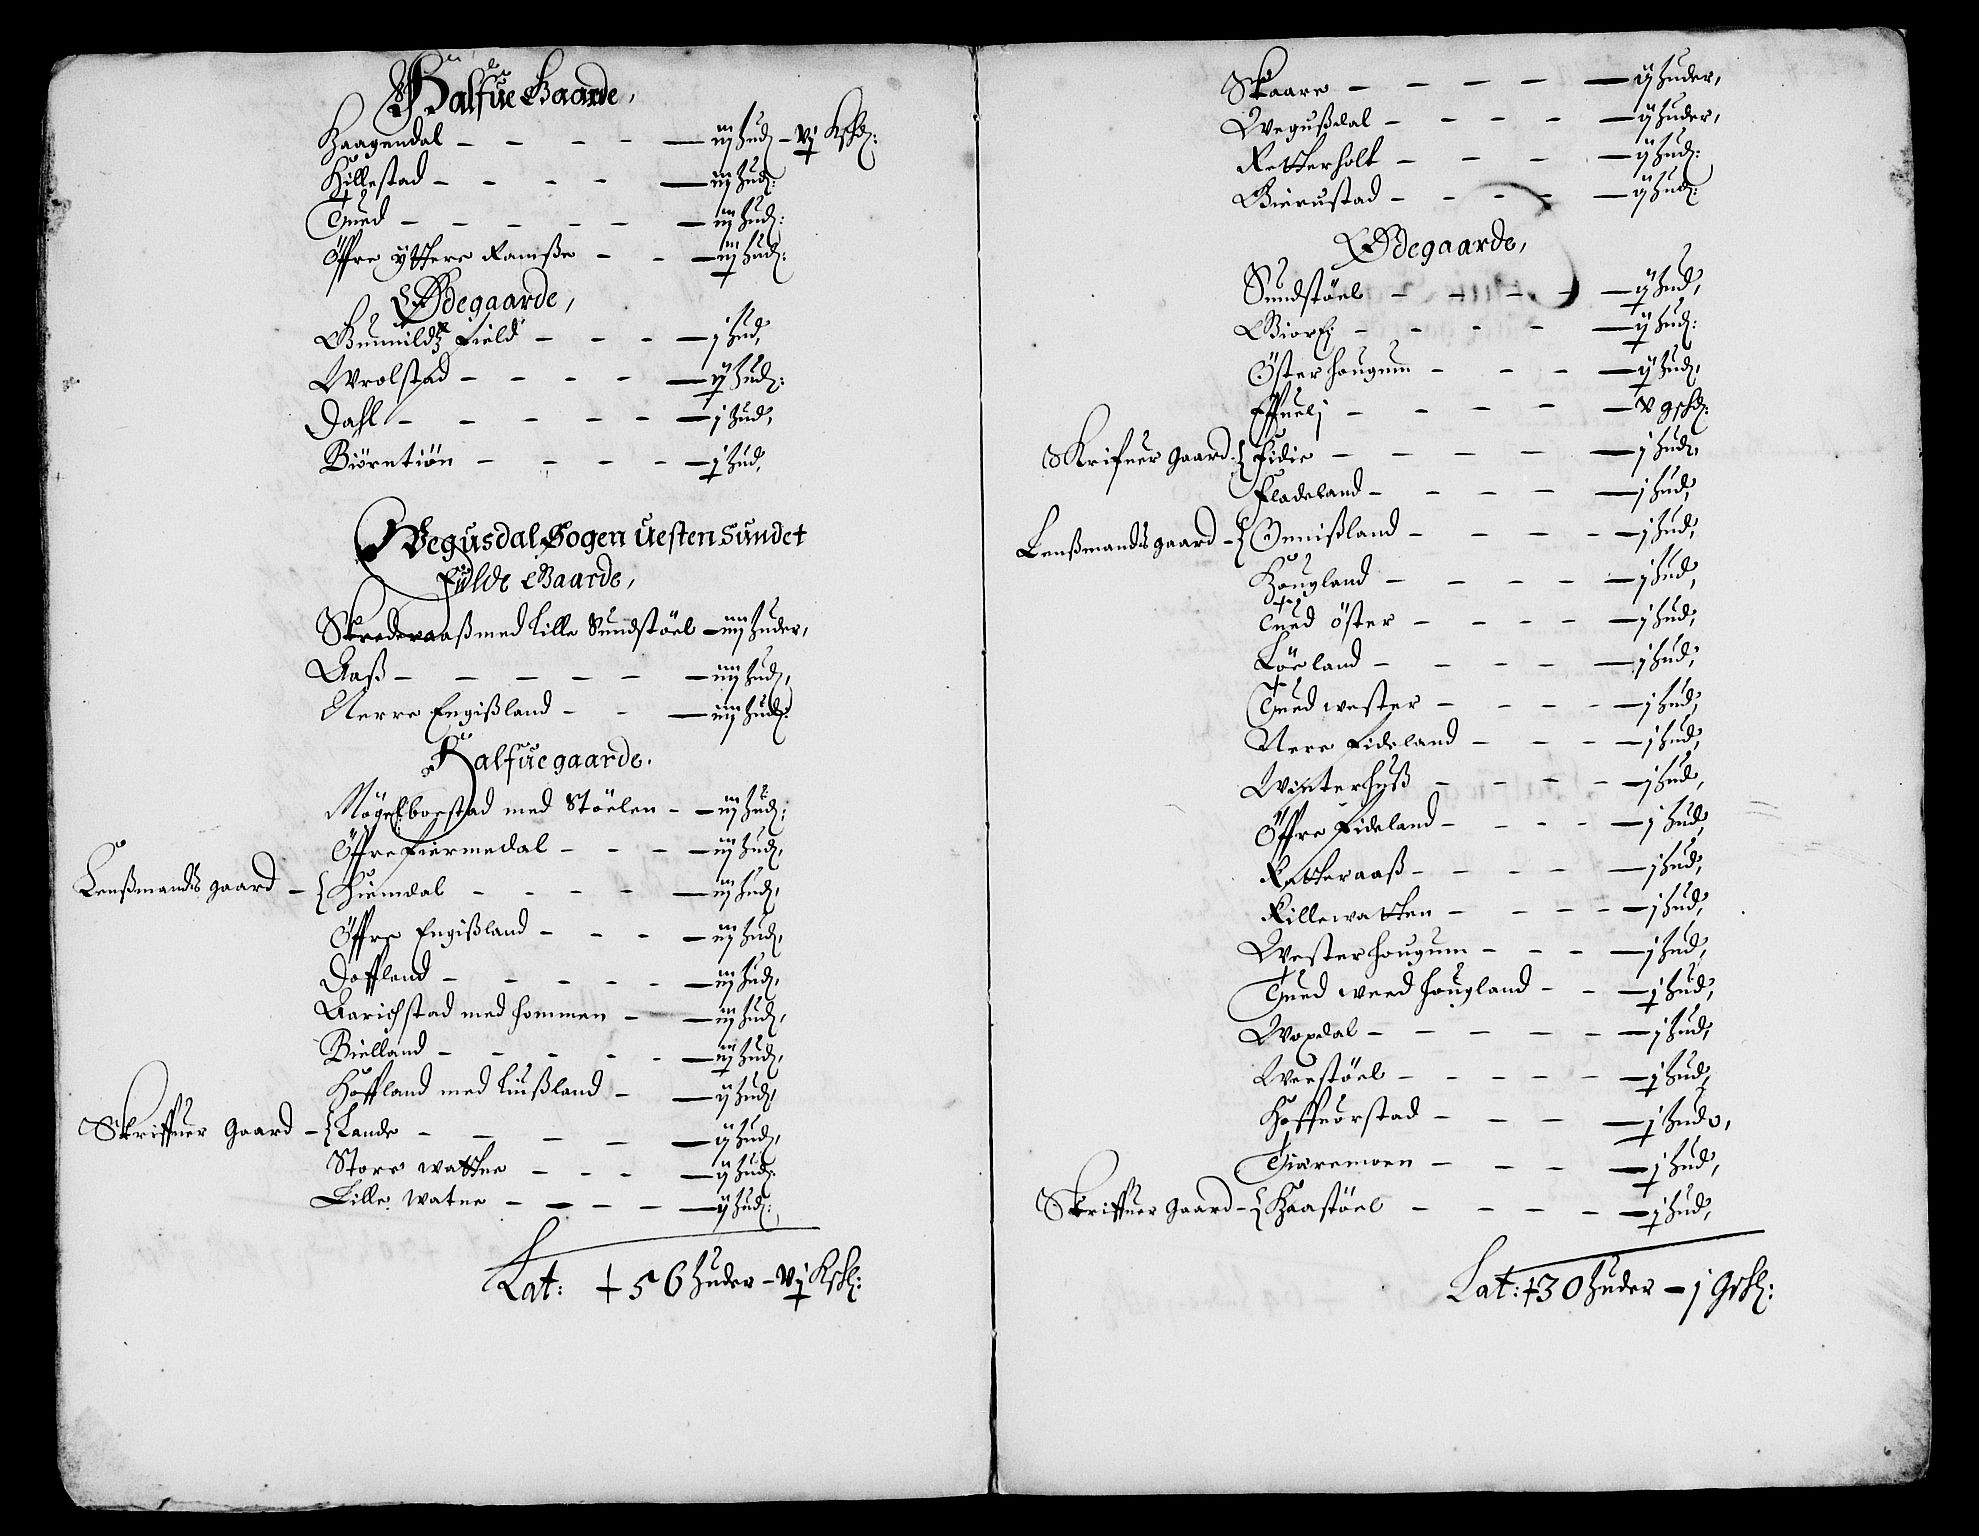 Halfue Gaarde,
Haagendal - - - - — iij hud - vj Kskd:
Hillestad - - - - — iij hud:
Tued - - - - - - — iij hud:
Öffre yttere Ramsse - - — iij hud:
Ødegaarde,
Gunnildz Field - - - — j hud,
Wrolstad - - - - — ij hud:
Dahl - - - - - — j hud,
Biörntiön - - - - — j hud,
Wegusdal Sogen Uesten Sundet
Fulde Gaarde,
Skrederaaß med Lille Sundstöel - iiij huder,
Aaß - - - - - - iiij hud,
Nerre Engißland - - — iiij hud:
Halfue gaarde.
Mögelboestad med Stöelen - - iij hud:
Öffre Fiermedal - - - — iij hud,
Lenßmands gaard - { Hiemdal - - - - — iij hud,
Öffre Engißland - - - — iij hud,
Doffland - - - - - — iij hud,
Aarichstad med hommen - — iij hud,
Bielland - - - - - — iij hud,
Hoffland med Liußland - — ij hud,
Skriffuer Gaard - { Lande - - - - — ij hud,
Store wattne - - - — ij hud:
Lille watne - - - - — ij hud:
Lat: + 56 huder - vj Kskl:
Skaare - - - - — ij huder,
Wegußdal - - - - — ij huder,
Retterholt - - - — ij hud:
Bierustad - - - - — ij hud:
Ødegaarde,
Sundstöel - - - - — ij hud,
Biorki - - - - — ij hud:
Öster hougum - - - — ij hud,
Effuelj - - - - — v gskd:
Skrifuer gaard { Fidie - - - - - — j hud,
Fladeland - - - - — j hud,
Lenßmands gaard - { Ounißland - - - - — j hud,
Hougland - - - - — j hud,
Tued öster - - - - — j hud,
Löeland - - - - — j hud,
Tued wester - - - - — j hud,
Nere Fideland - - - — j hud,
Winterhuß - - - - — j hud,
Öffre Fideland - - - - — j hud,
Katteraaß - - - - — j hud,
Killewatten - - - - — j hud,
Wester hougum - - - — j hud,
Tued weed hougland - - — j hud,
Woxdal - - - - - — j hud,
Weestöel - - - - - — j hud,
Hoffuorstad - - - — j hud,
Tiøremoen - - - — j hud,
Skriffuer gaard - { Haastöel - - - - — j hud,
Lat: + 30 huder - j Gskl: